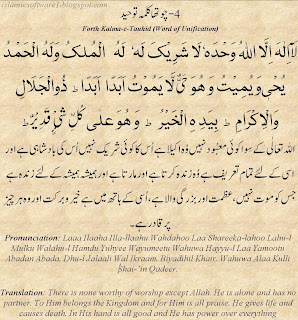 islamicsoftware1.blogspot.com
4- چوتھا کلمہ توحید
Forth Kalma-e-Tauhid (Word of Unification)
لَا اِلٰهَ اِلَّا اللهُ وَحْدَهٗ لَا شَرِيْكَ لَهٗ لَهُ الْمُلْكُ وَلَهُ الْحَمْدُ
يُحْىٖ وَيُمِيْتُ وَهُوَ حَىٌّ لَّا يَمُوْتُ اَبَدًا اَبَدًا ؕ ذُو الْجَلَالِ
وَالْاِكْرَامِ ؕ بِيَدِهِ الْخَيْرُ ؕ وَهُوَ عَلٰى كُلِّ شَىْءٍ قَدِيْرٌ ؕ
اللہ تعالٰی کے سوا کوئی معبود نہیں وہ اکیلا ہے اس کا کوئی شریک نہیں اُس کی بادشاہی ہے اور
اسی کے لئے تمام تعریف ہے وہ زندہ کرتا ہے اور مارتا ہے اور ہمیشہ ہمیشہ کے لئے زندہ ہے
جس کو موت نہیں، عظمت اور بزرگی والا ہے، اسی کے ہاتھ میں ہے خیر و برکت اور وہ ہر چیز
پر قادر ہے۔
Pronunciation: Laaa Ilaaha Illa-llaahu Wahdahoo Laa Shareeka-lahoo Lahu-l
Mulku Walahu-l Hamdu Yuhyee Wayumeetu Wahuwa Hayyu-l Laa Yamootu
Abadan Abada, Dhu-l-Jalaali Wal Ikraam, Biyadihil Khair. Wahuwa Alaa Kulli
Shai-'in Qadeer.
Translation: There is none worthy of worship except Allah. He is alone and has no
partner. To Him belongs the Kingdom and for Him is all praise. He gives life and
causes death. In His hand is all good and He has power over everything